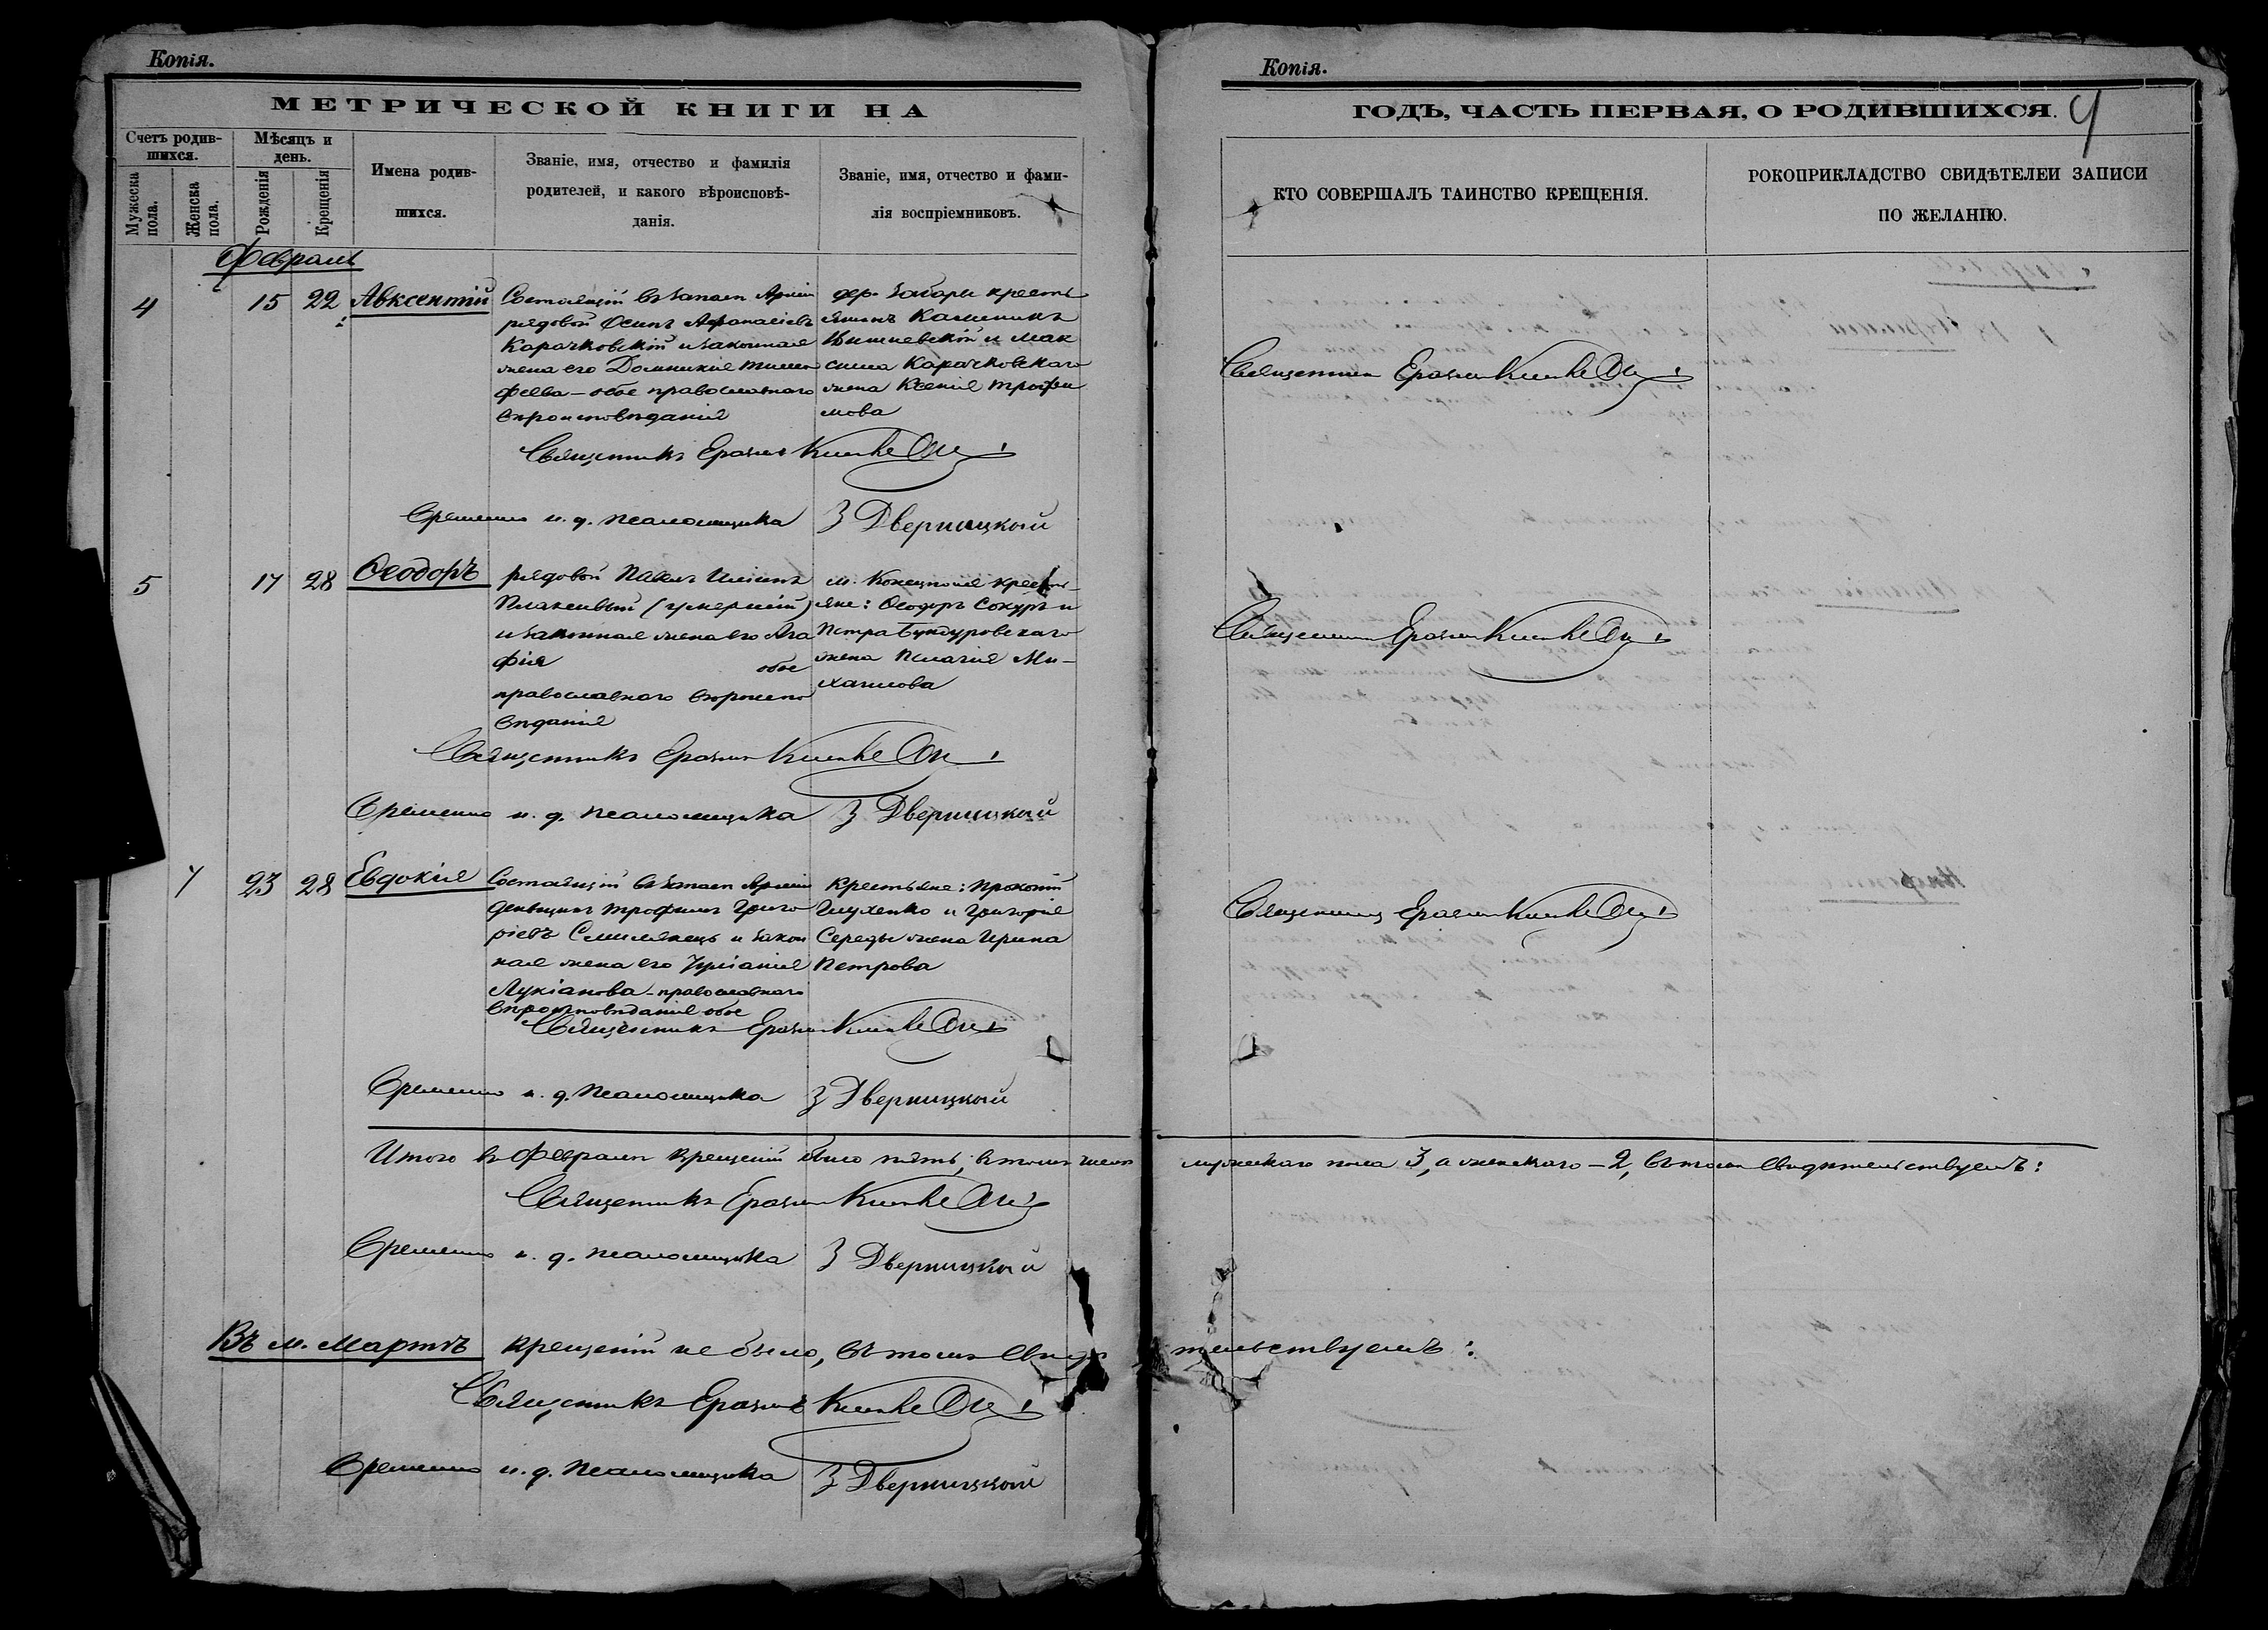 Копія.
МЕТРИЧЕСКОЙ КНИГИ НА
Счетъ родив-
шихся.
Мѣсяцъ и
день.
Мужеска
пола.
Женска
пола.
Рожденія
Крещенія
Имена родив-
шихся.
Званіе, имя, отчество и фамилія
родителей, и какого вѣроисповѣ-
данія.
Званіе, имя, отчество и фами-
лія воспріемниковъ.
Февраль
4 15 22 Авксентій
Состоящій въ запасѣ Арміи
рядовой Осипъ Афанасіевъ
Карачковскій и законная
жена его Домникія Тимо
феева – обое православнаго
вѣроисповѣданія
дер. Забары кресть
янинъ Калиникъ
Вишневскій и Мак
сима Карачковскаго
жена Ксенія Трофи
мова
Священникъ
Временно и. д. псаломщика З Дверницкый
5 17 28 Ѳеодоръ
рядовой Павелъ
Плаксивый (умершій)
и законная жена его Ага
фія обое
православнаго вѣроиспо
вѣданія
м. Конецполя кресть-
яне: Ѳеодоръ Сокуръ и
Петра Бундуровскаго
жена Пелагія Ми-
хаилова
Священникъ
Временно и. д. псаломщика З Дверницкый
23 28 Евдокія
Состоящій въ запасѣ Арміи
деньщикъ Трофимъ Григо
ріевъ и закон
ная жена его Іуліанія
Лукіанова – православнаго
вѣроисповѣданія обое
Крестьяне: Прокопій
Глухенко и Григорія
Середы жена Ирина
Петрова
Священникъ
Временно и. д. псаломщика З Дверницкый
Итого въ Февралѣ крещеній было пять, въ томъ числѣ
Священникъ
Временно и. д. псаломщика З Дверницкый
Въ м. Мартѣ крещеній не было, въ томъ свидѣ
Священникъ
Временно и. д. псаломщика З Дверницкый
Копія.
ГОДЪ, ЧАСТЬ ПЕРВАЯ, О РОДИВШИХСЯ.
КТО СОВЕРШАЛЪ ТАИНСТВО КРЕЩЕНІЯ.
РОКОПРИКЛАДСТВО СВИДѢТЕЛЕИ ЗАПИСИ
ПО ЖЕЛАНІЮ.
Священникъ
Священникъ
Священникъ
мужескаго пола 3, а женскаго – 2, въ томъ свидѣтельствуемъ:
тельствуемъ: